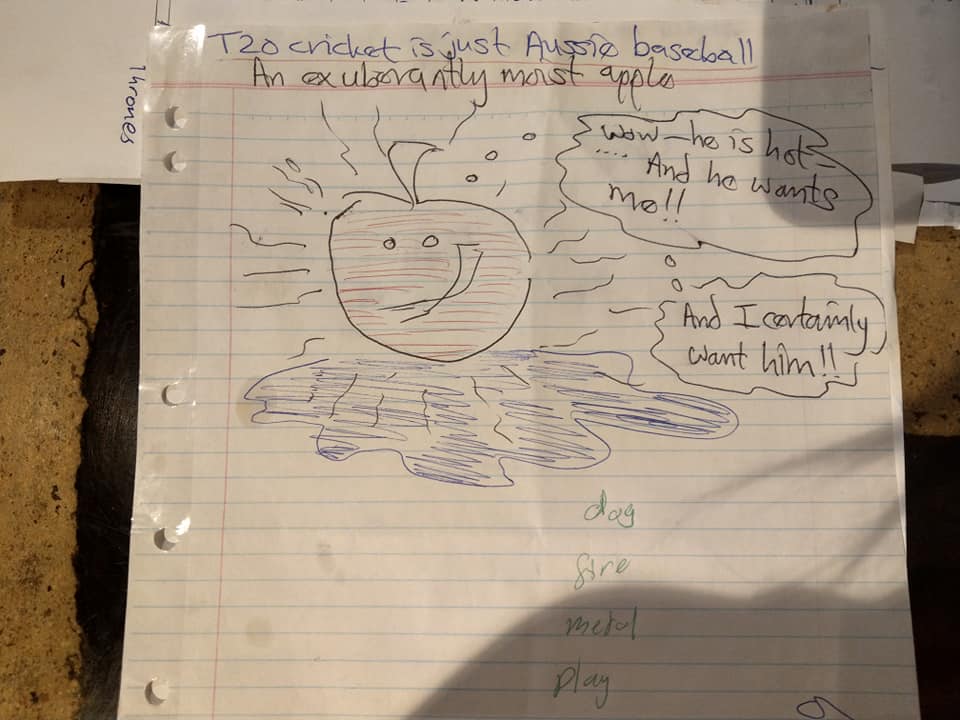 T20 cricket is just Aussie baseball
An exuberantly moist apple
Thrones
Wow - he is hot -
.... And he wants
me!!
And I certainly
want him!!
dog
fire
metal
play